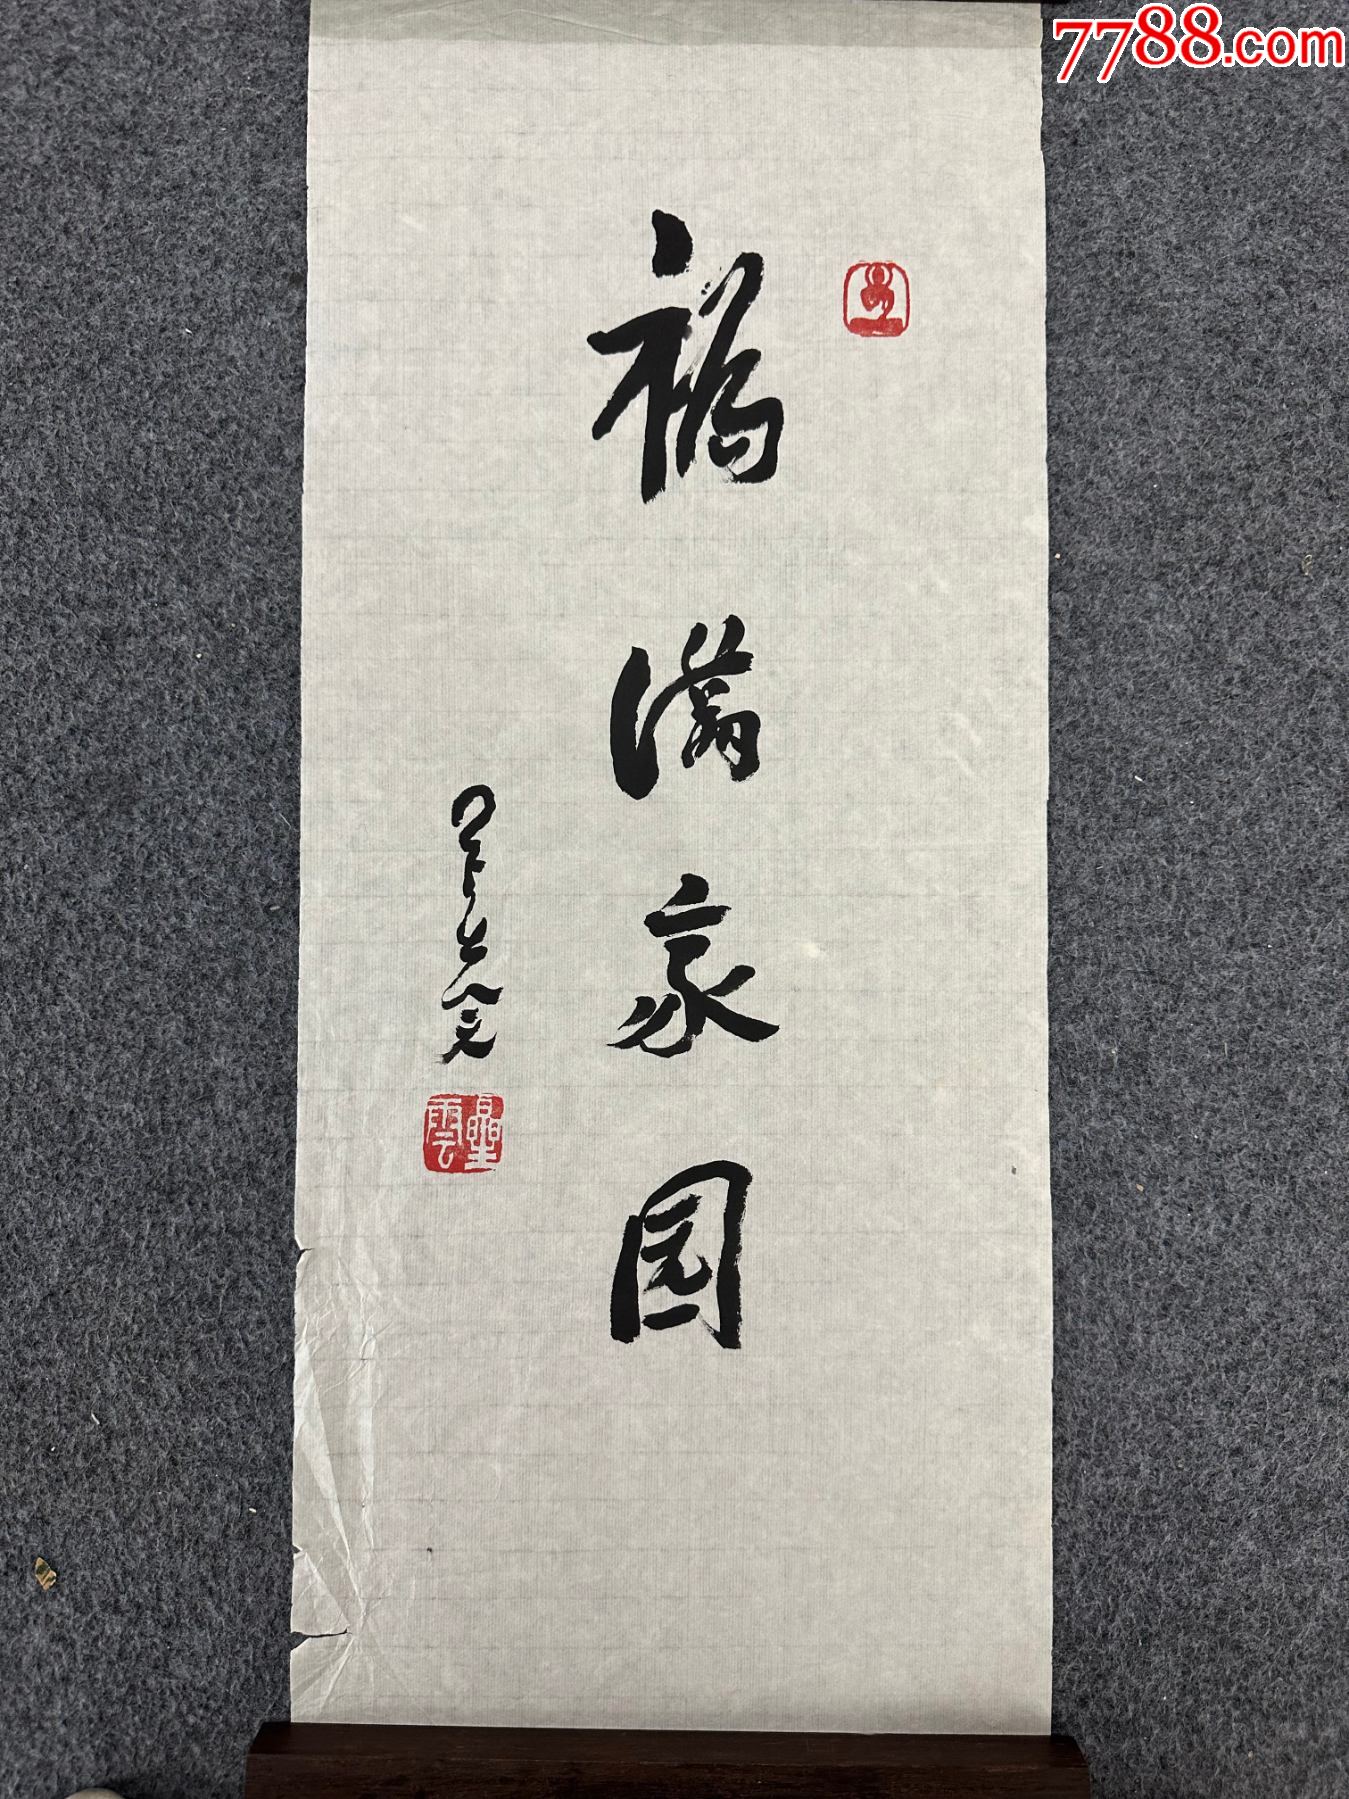 7788.com
福满家园
星云
星雲